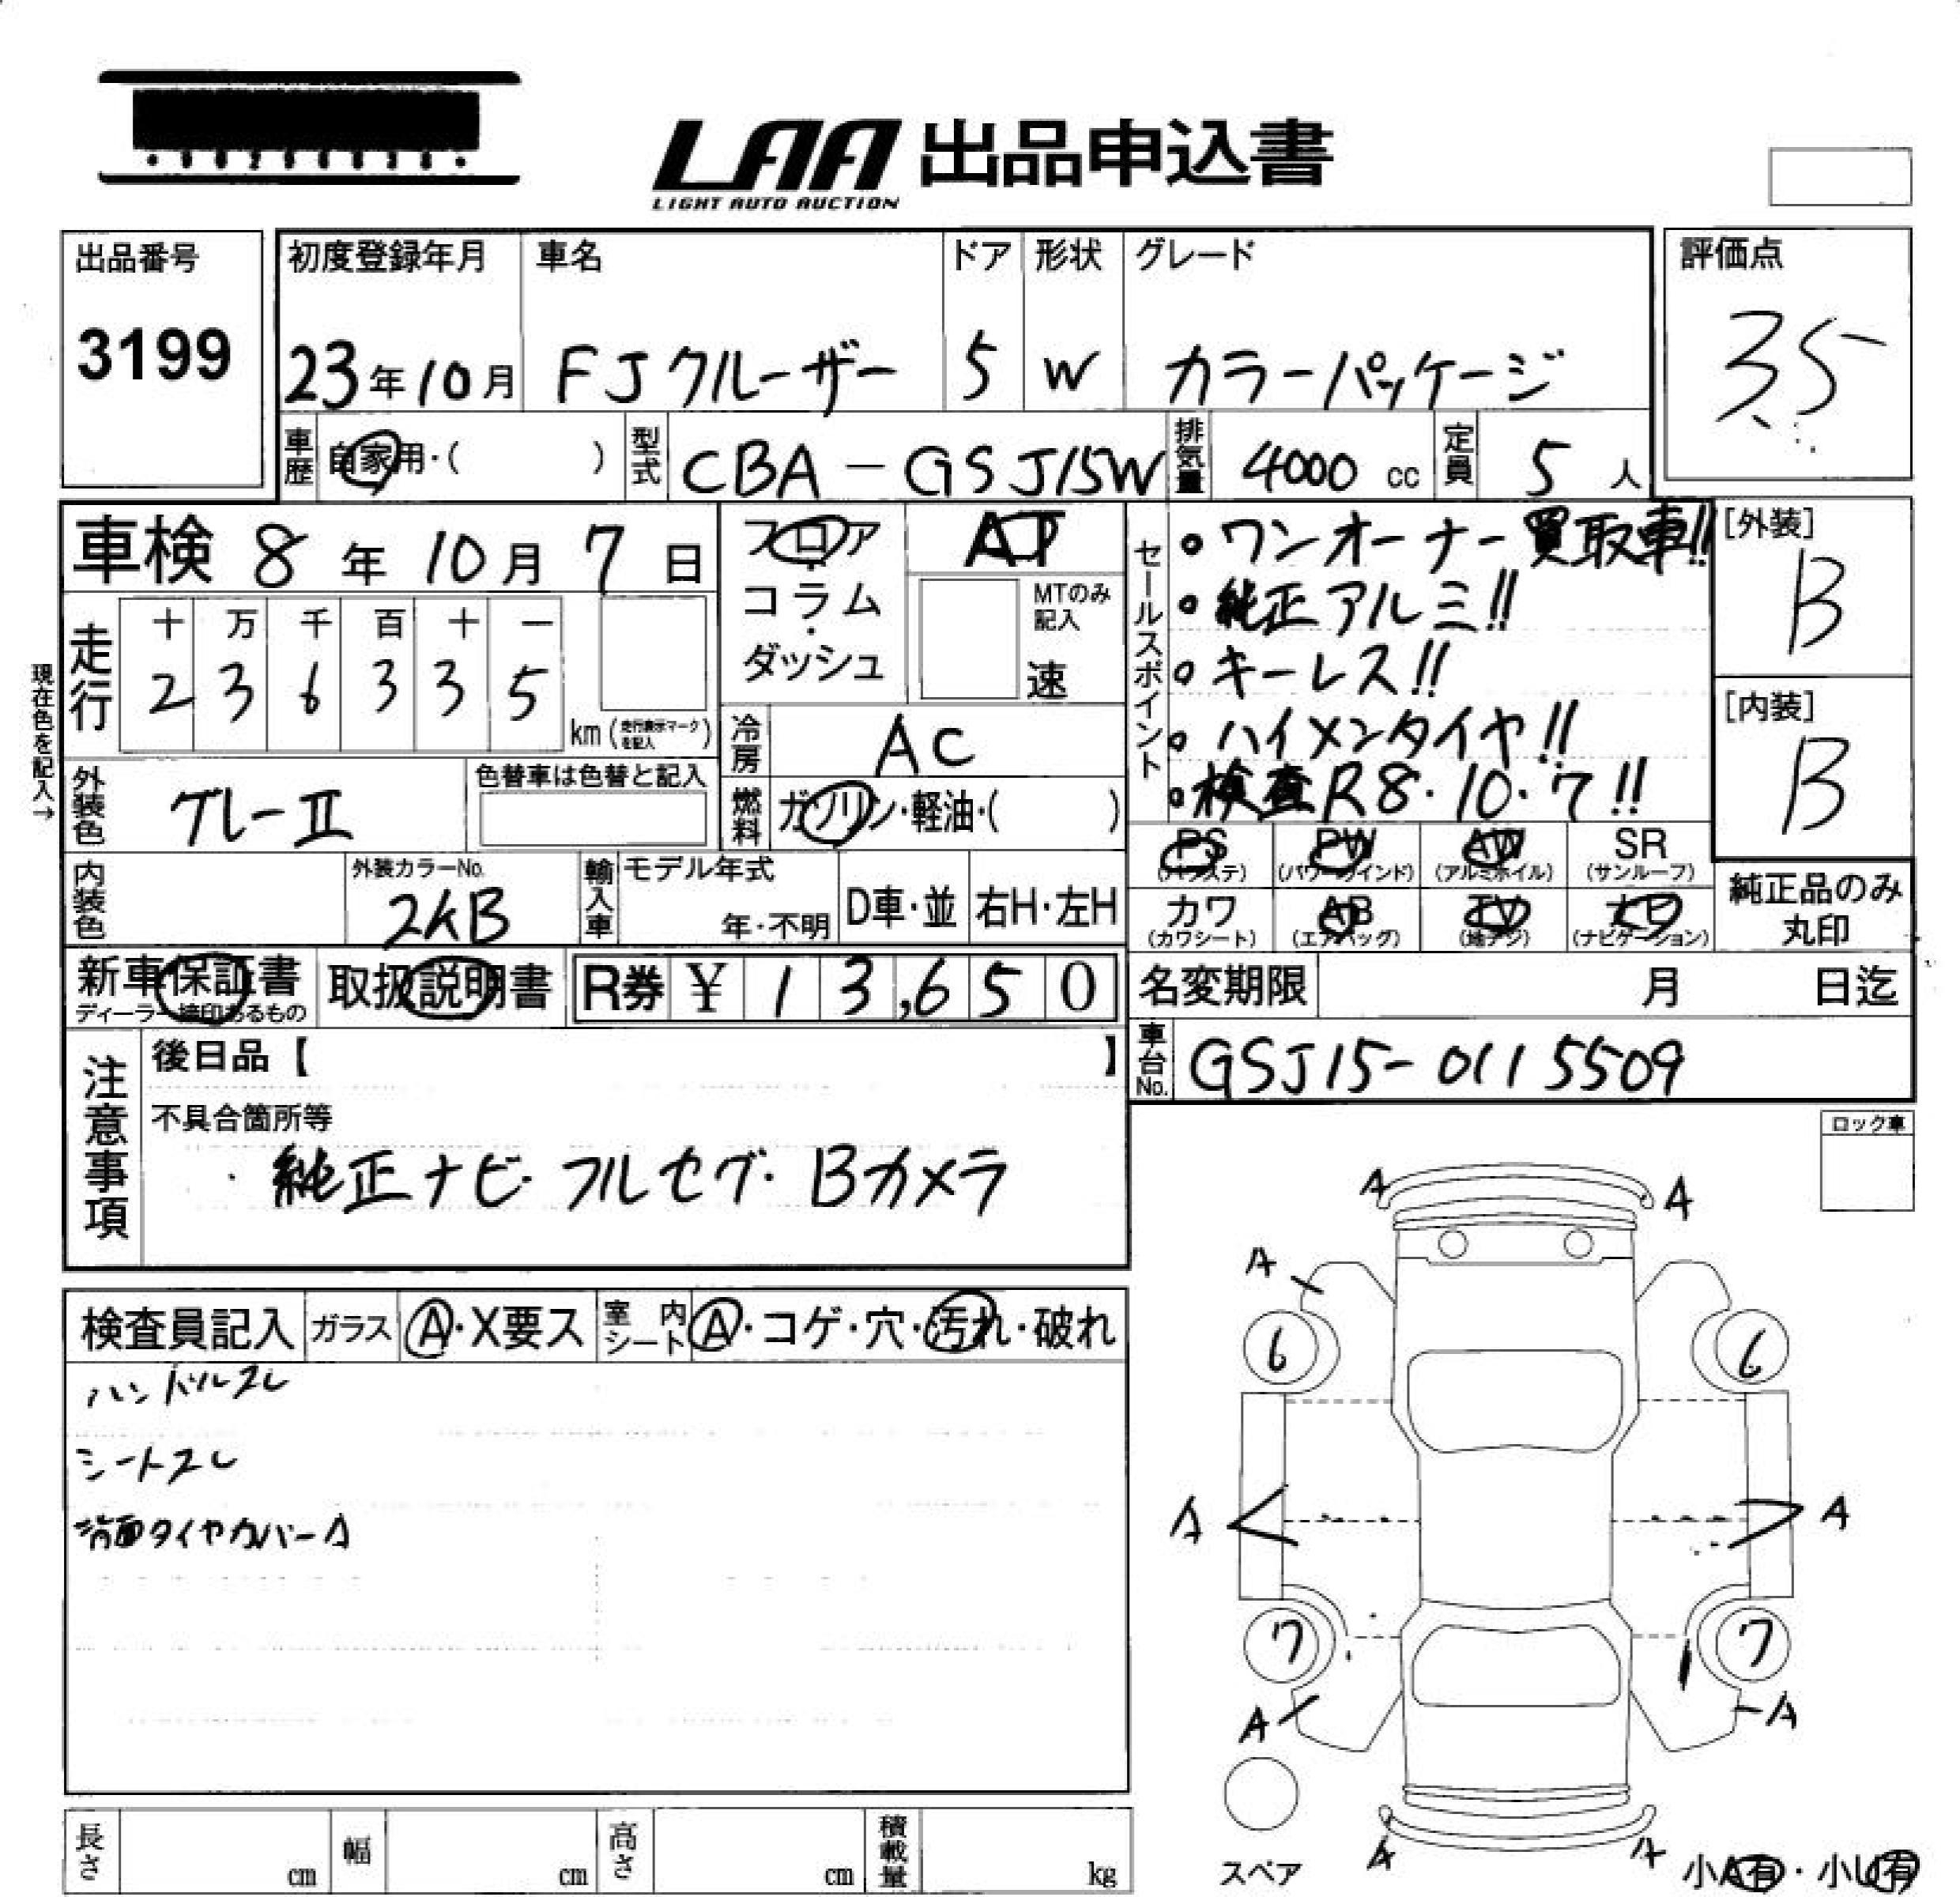 LAA 出品申込書
LIGHT AUTO AUCTION
出品番号
3199
初度登録年月
23年10月
車名
FJクルーザー
ドア
5
形状
W
グレード
カラーパッケージ
評価点
3.5
車歴 自家用・( )
型式 CBA-GSJ15W
排気量 4000 cc
定員 5 人
車検 8年10月7日
フロア・コラム・ダッシュ
AT
MTのみ記入
速
セールスポイント
・ワンオーナー買取車!!
・純正アルミ!!
・キーレス!!
・ハイメンタイヤ!!
・検査R8・10・7!!
[外装]
B
[内装]
B
走行
十 万 千 百 十 一
2 3 6 3 3 5
km(走行表示マークを記入)
現在色を記入→
外装色 グレーII
色替車は色替と記入
冷房 AC
燃料 ガソリン・軽油・( )
内装色
外装カラーNo.
2KB
輸入車
モデル年式
年・不明
D車・並
右H・左H
PS (パワステ)
PW (パワーウインド)
AW (アルミホイル)
SR (サンルーフ)
カワ (カワシート)
AB (エアバッグ)
TV (地デジ)
ナビ (ナビゲーション)
純正品のみ
丸印
新車保証書
ディーラー捺印あるもの
取扱説明書
R券 ¥ 13,650
名変期限 月 日迄
車台No. GSJ15-0115509
注意事項
後日品【 】
不具合箇所等
・純正ナビ・フルセグ・Bカメラ
ロック車
検査員記入
ガラス A・X要ス
室内シート A・コゲ・穴・汚れ・破れ
ハンドルスレ
シートスレ
背面タイヤカバーA
A A
A
6 6
A A
7 7
A A
スペア
A A
小A有・小U有
長さ cm
幅 cm
高さ cm
積載量 kg